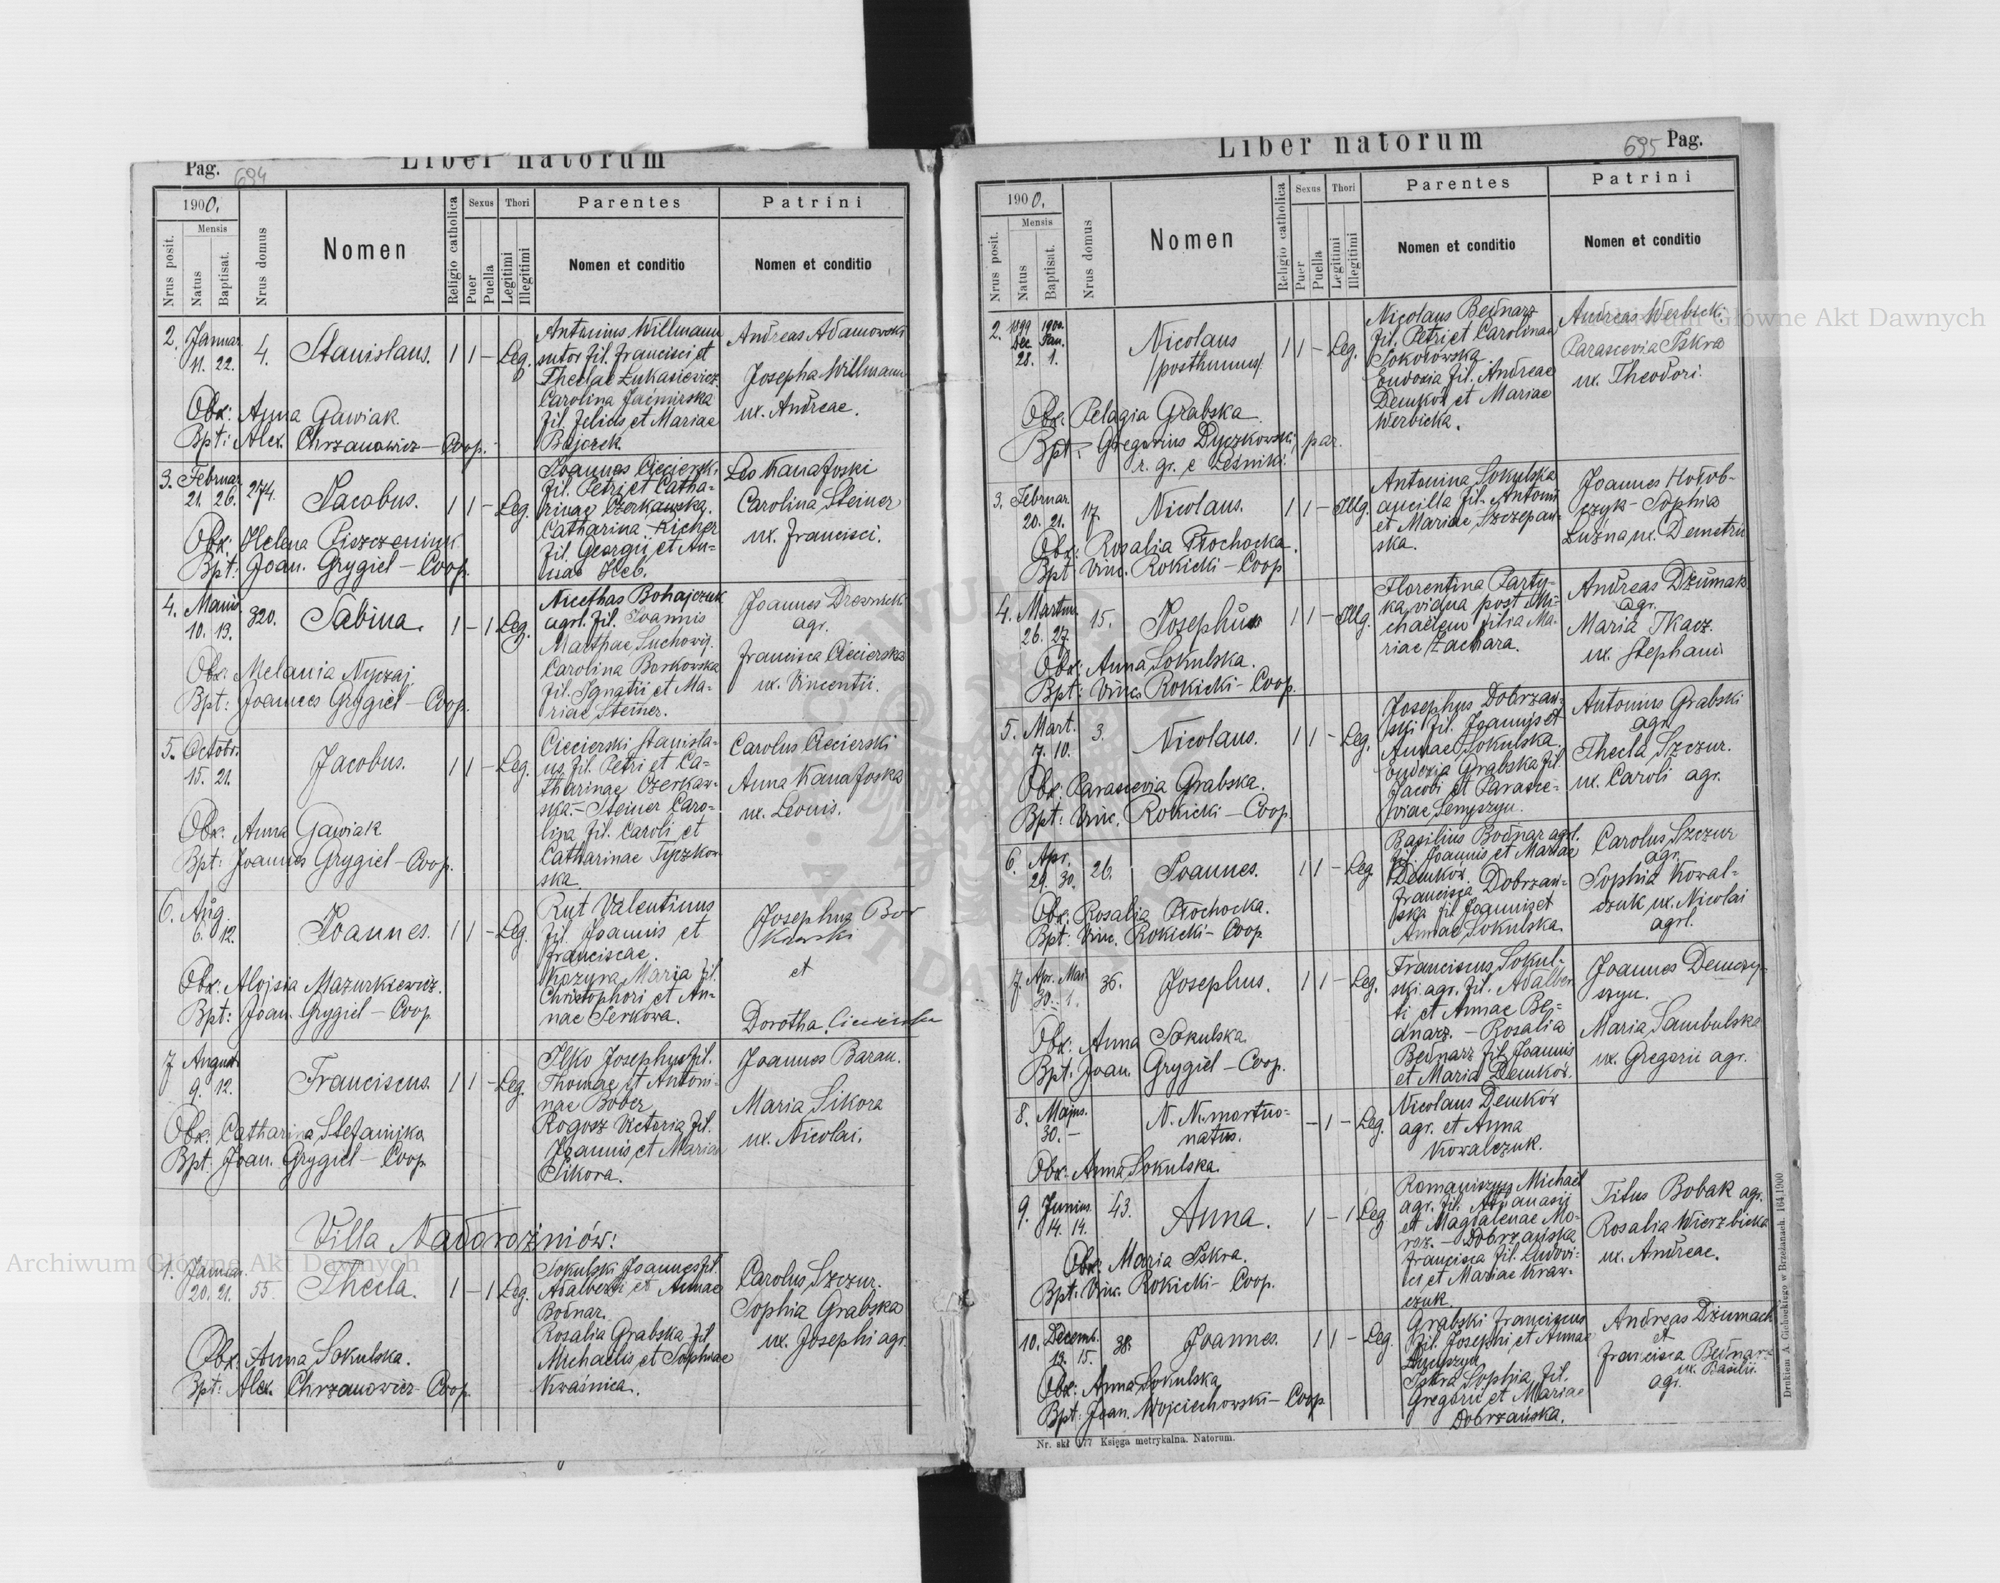 Pag. 694
Liber natorum
1900.
Nrus posit.
Mensis
Natus
Baptisat.
Nrus domus
Nomen
Religio catholica
Sexus
Puer
Puella
Thori
Legitimi
Illegitimi
Parentes
Nomen et conditio
Patrini
Nomen et conditio
2. Januar. 11. 22. 4. Stanislaus. 1 1 – Leg.
Antonius Willmann
sutor fil. Francisci et
Theclae Łukasiewicz.
Carolina Jaćmirska
fil. Felicis et Mariae
Bajorek.
Andreas Adamowski
Josepha Willmann
ux. Andreae.
Obx: Anna Gawiak.
Bpt: Alex. Chrzanowicz – Coop.
3. Februar. 21. 26. 274. Jacobus. 1 1 – Leg.
Joannes Ciecierski
fil. Petri et Catha-
rinae Czerkawska.
Catharina Richer
fil. Georgii et An-
nae Heb.
Leo Kanafoski
Carolina Steiner
ux. Francisci.
Obx: Helena Piszczeniuk
Bpt: Joan. Grygiel – Coop.
4. Martii 10. 13. 320. Sabina. 1 – 1 Leg.
Nicethas Bohajczuk
agrl. fil. Joannis
Marthae Suchowij.
Carolina Borkowska
fil. Ignatii et Ma-
riae Steiner.
Joannes Dresnick
agr.
Francisca Ciecierska
ux. Vincentii.
Obx: Melania Nyczaj.
Bpt: Joannes Grygiel – Coop.
5. Octobr. 15. 21. Jacobus. 1 1 – Leg.
Ciecierski Stanisla-
us fil. Petri et Ca-
tharinae Czerkaw-
ska. – Steiner Caro-
lina fil. Caroli et
Catharinae Tyczkow-
ska.
Carolus Ciecierski
Anna Kanafoska
ux. Leonis.
Obx: Anna Gawiak
Bpt: Joannes Grygiel – Coop.
6. Aug. 6. 12. Joannes. 1 1 – Leg.
Rut Valentinus
fil. Joannis et
Franciscae.
Kozyra Maria fil.
Christophori et An-
nae Serkowa.
Josephus Bor
kowski
et
Dorotha Ciecierska
Obx: Alojsia Mazurkiewicz.
Bpt: Joan. Grygiel – Coop.
7 August. 9. 12. Franciscus. 1 1 – Leg.
Ilko Josephus fil.
Thomae et Antoni-
nae Bober
Rogosz Victoria fil.
Joannis et Maria
Sikora.
Joannes Baran.
Maria Sikora
ux. Nicolai.
Obx: Catharina Stefainjka
Bpt: Joan. Grygiel – Coop.
Villa Nadorożniów:
1. Januar. 20. 21. 55. Thecla. 1 – 1 Leg.
Sokulski Joannes fil.
Adalberti et Annae
Bodnar.
Rosalia Grabska fil.
Michaelis et Sophiae
Kwaśnica.
Carolus Szczur.
Sophia Grabska
ux. Josephi agr.
Obx: Anna Sokulska.
Bpt: Alex. Chrzanowicz – Coop.
Liber natorum
695 Pag.
1900.
Nrus posit.
Mensis
Natus
Baptisat.
Nrus domus
Nomen
Religio catholica
Sexus
Puer
Puella
Thori
Legitimi
Illegitimi
Parentes
Nomen et conditio
Patrini
Nomen et conditio
2. 1899 Dec. 28. 1900. Jan. 1. Nicolaus
/posthumus/ 1 1 – Leg.
Nicolaus Bednarz
fil. Petri et Carolinae
Sokołowska.
Eudoxia fil. Andreae
Demków et Mariae
Werbicka.
Andreas Werbicki
Parascevia Iskra
ux. Theodori.
Obx: Pelagia Grabska
Bpt: Gregorius Dyczkowski, par.
r. gr. e Leśniki.
3. Februar. 20. 21. 17. Nicolaus. 1 1 – Illg.
Antonina Sokulska
ancilla fil. Antonii
et Mariae Szczepan-
ska.
Joannes Hołob-
czyk – Sophia
Luźna ux. Demetrii
Obx: Rosalia Płochocka.
Bpt: Vinc. Rokicki – Coop
4. Martius. 26. 27. 15. Josephus 1 1 – Illg.
Florentina Party-
ka vidua post Mi-
chaelem filia Ma-
riae Zachara.
Andreas Dżumak
agr.
Maria Tkacz.
ux. Stephani
Obx: Anna Sokulska.
Bpt: Vinc. Rokicki – Coop.
5. Mart. 7. 10. 3. Nicolaus. 1 1 – Leg.
Josephus Dobrzań-
ski fil. Joannis et
Annae Sokulska.
Eudoxia Grabska fil.
Jacobi et Parasce-
viae Semyszyn.
Antonius Grabski
agr.
Thecla Szczur.
ux. Caroli agr.
Obx: Parascevia Grabska.
Bpt: Vinc. Rokicki – Coop.
6. Apr. 29. 30. 26. Joannes. 1 1 – Leg.
Basilius Bodnar agrl.
fil. Joannis et Mariae
Demków.
Francisca Dobrzań-
ska fil Joannis et
Annae Sokulska.
Carolus Szczur
agr.
Sophia Kowal-
czuk ux. Nicolai
agrl.
Obx: Rosalia Płochocka.
Bpt: Vinc. Rokicki – Coop
7. Apr. 30. Mai. 1. 36. Josephus. 1 1 – Leg.
Franciscus Sokul-
ski agr. fil. Adalber
ti et Annae Be-
dnarz. – Rosalia
Bednarz fil Joannis
et Maria Demków.
Joannes Demczy-
szyn.
Maria Sambulska
ux. Gregorii agr.
Obx: Anna Sokulska.
Bpt: Joan. Grygiel – Coop.
8. Majus. 30. – N. N. mortuo-
natus. – 1 – Leg.
Nicolaus Demków
agr. et Anna
Kowalczuk.
Obx: Anna Sokulska.
9. Junius. 14. 14. 43. Anna. 1 – 1 Leg
Romaniszyn Michael
agr. fil. Athanasij
et Magdalenae Mo-
roz. – Dobrzańska
Francisca fil. Ludovi-
ci et Mariae Kraw-
czuk.
Titus Bobak agr.
Rosalia Wierzbicka
ux. Andreae.
Obx: Maria Iskra.
Bpt: Vinc. Rokicki – Coop.
10. Decemb. 13. 15. 38. Joannes. 1 1 – Leg
Grabski Franciscus
fil. Josephi et Annae
Iskra Sophia fil.
Gregorii et Mariae
Dobrzańska.
Andreas Dżumach
et
Francisca Bednarz
ux. Basilii
agr.
Obx: Anna Sokulska
Bpt: Joan. Wojciechowski – Coop
Nr. skł 177 Księga metrykalna. Natorum.
Drukiem A. Cichockiego w Brzeżanach. 164.1900.
Archiwum Główne Akt Dawnych
Archiwum Główne Akt Dawnych